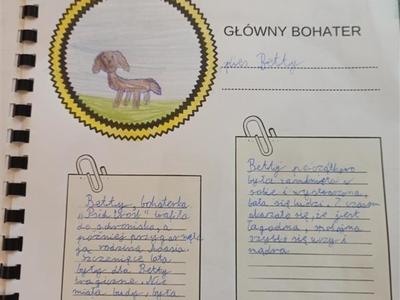 GŁÓWNY BOHATER
pies Betty
Betty, bohaterka
trafiła
do schroniska, a
później przygarnęła
ją rodzina
szczenięce lata
były dla Betty
tragiczne. Nie
miała budy, była
Betty początkowo
była zamknięta w
sobie i wystraszona,
bała się ludzi. Z czasem
okazało się, że jest
łagodna, spokojna
szybko się uczy i
mądra